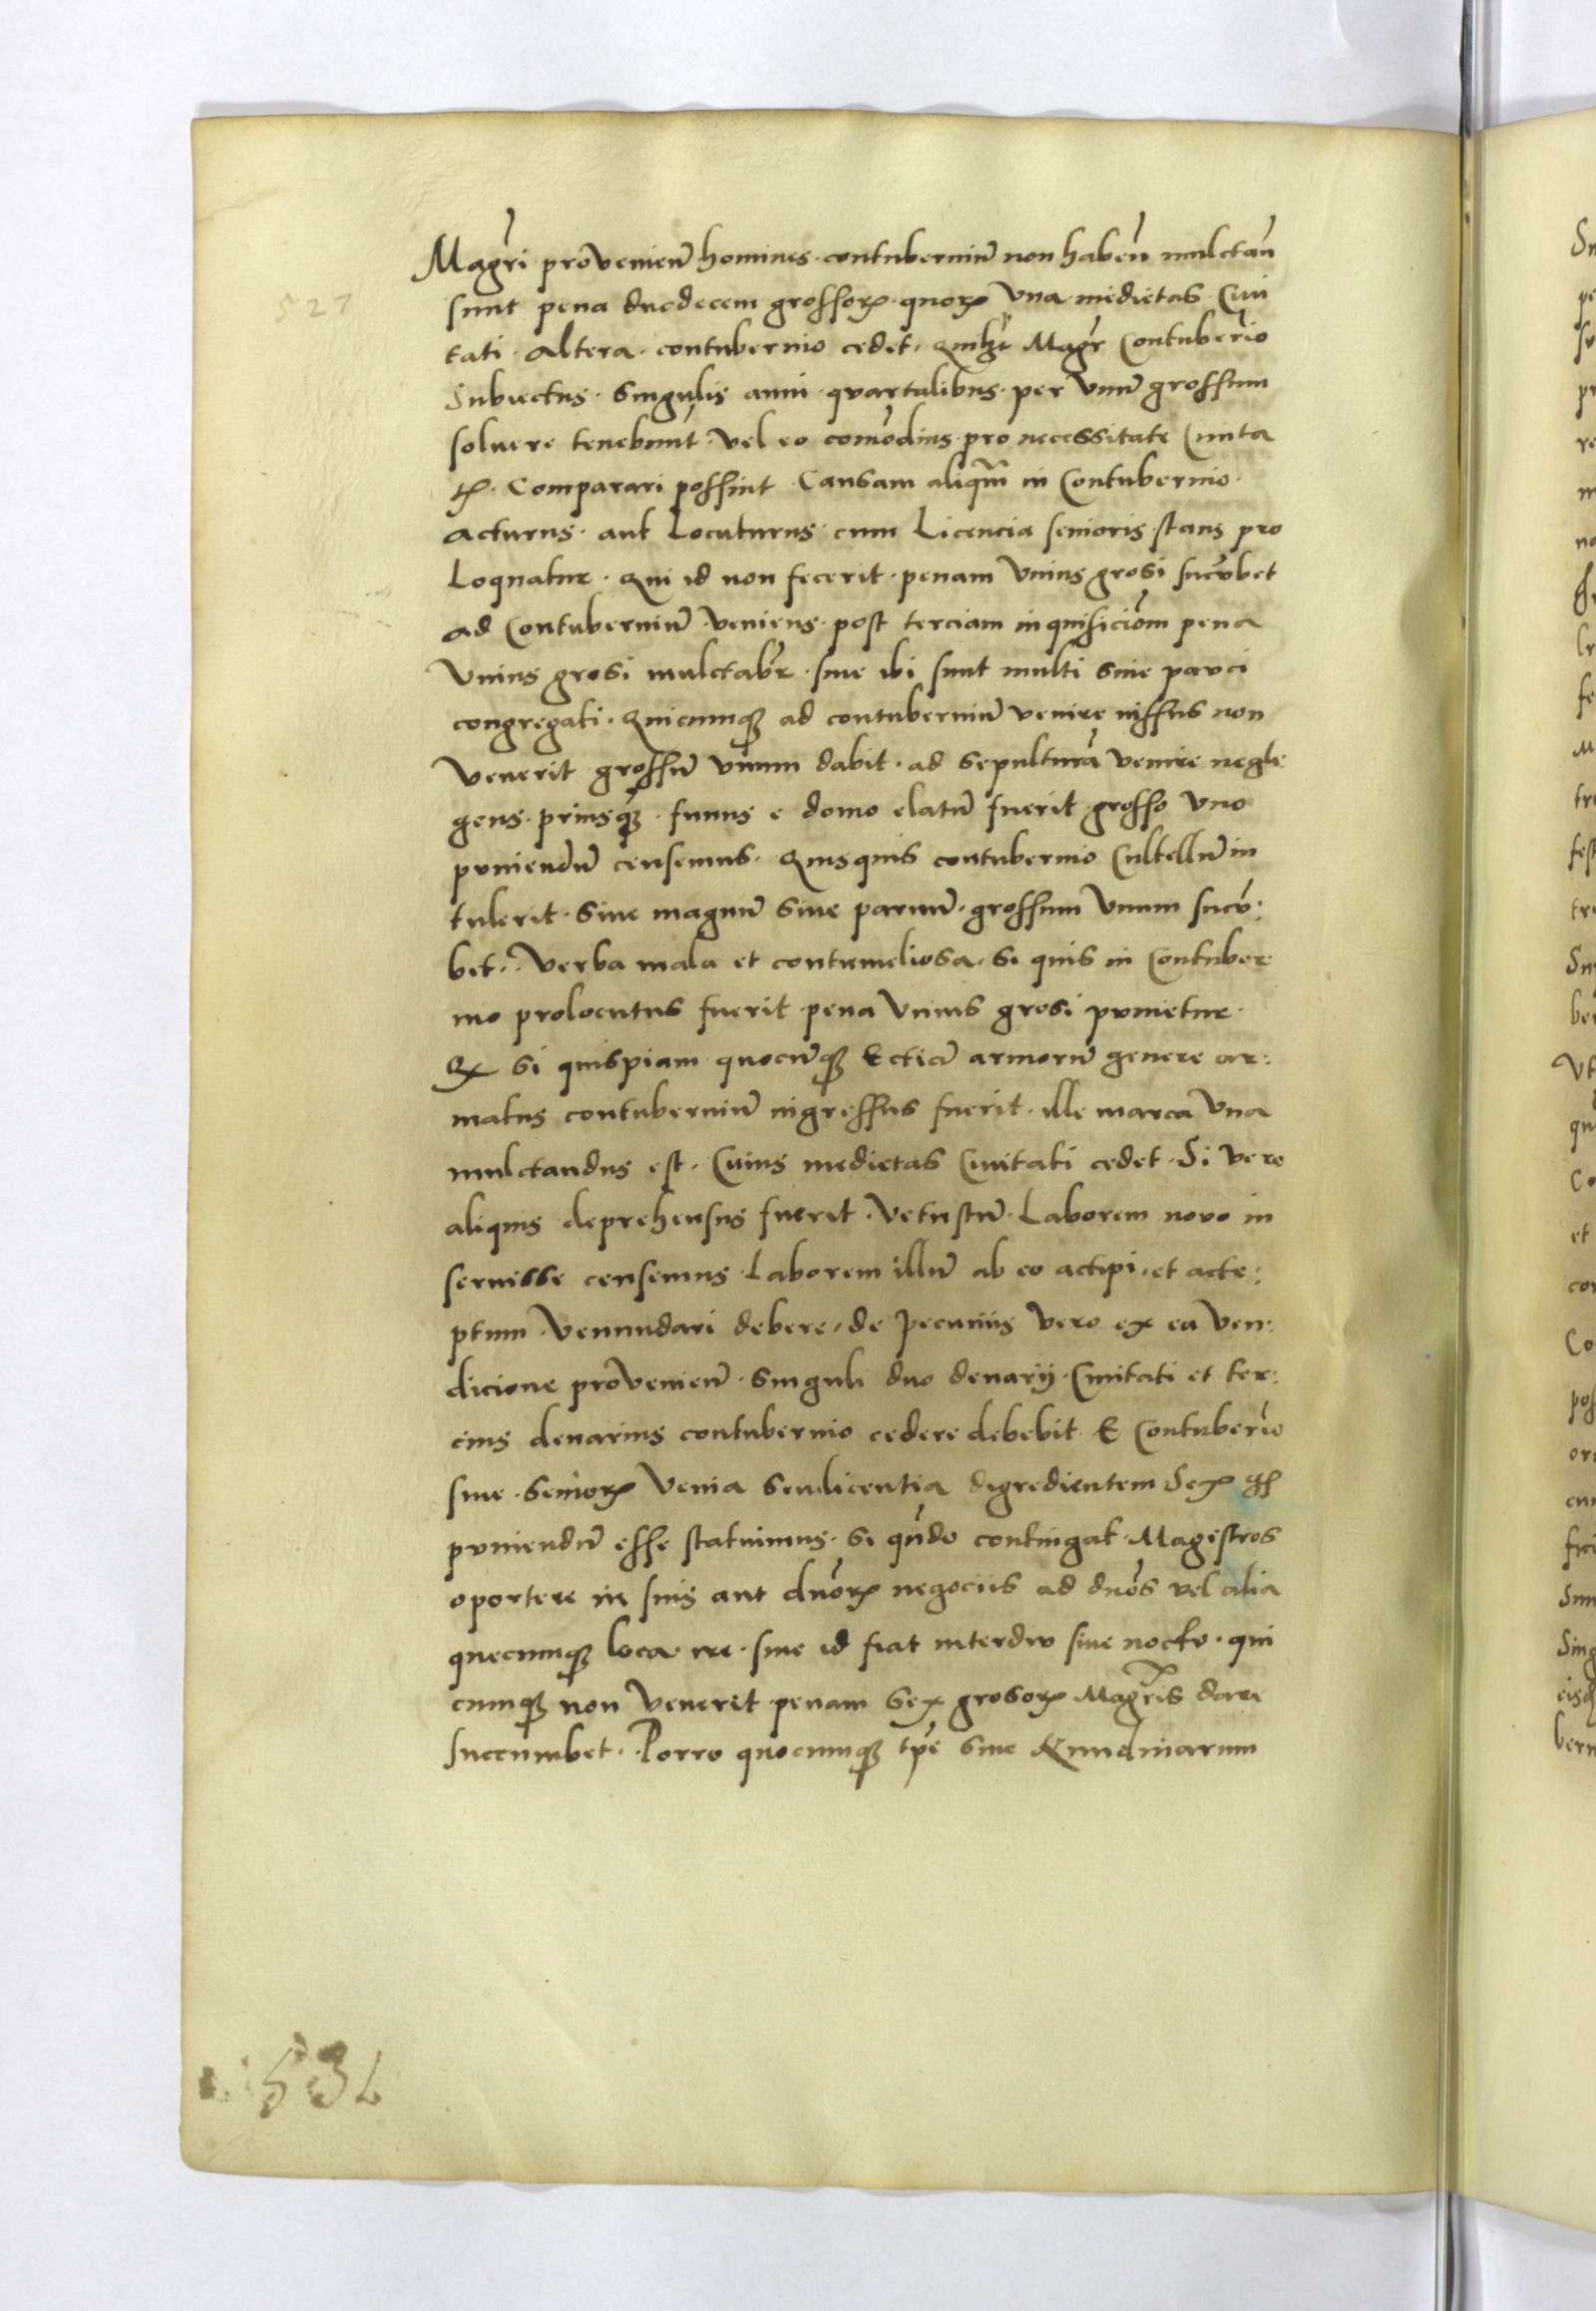 Magr̃i provenieñ homines · contuberniũ non habeñ mulctañ
527
sunt pena duodecem grossoꝝ · quoꝝ Vna medietas Ciui
tati · Altera · contubernio cedet · Quilꝫ Magr̃ Contuberĩo
Subiectus · Singulis anni quartalibus · per Vnũ grossum
soluere tenebunt̃ · Vel eo com̃odius pro necessitate Cuncta
Comparari possint Causam aliqm̃ in Contubernio ·
acturus · aut Locuturus · cum Licencia senioris stans pro
Loquatur · Qui id non fecerit · penam Vnius grosi sucũbet
ad Contuberniũ Veniens · post terciam inquisiciom̃ pena
Vnius grosi mulctabr̃ · siue ibi sunt multi siue pauci
congregati · Quicumqꝫ ad contuberniũ venire iussus non
Venerit grossũ vnum dabit · ad Sepulturã venire negle
gens · priusqꝫ · funus e domo elatũ fuerit grosso Vno
puniendũ censemus · Quisquis contubernio Cultellũ in
tulerit · Siue magnũ Siue paruũ · grossum Vnum sucũ:
bet · Verba mala et contumeliosa · Si quis in Contuber
nio prolocutus fuerit pena Vnius grosi punietur ·
si quispiam quocũqꝫ armorũ genere ar:
matus contuberniũ ingressus fuerit · ille marca Vna
mulctandus est · Cuius medietas Ciuitati cedet · Si vero
aliquis deprehensus fuerit · Vetustũ · Laborem novo in
seruisse censemus Laborem illũ ab eo accipi · et acce:
ptum · Venundari debere · de Pecuniis Vero ex ea Ven:
dicione provenieñ · Singuli duo denarij · Ciuitati et ter:
cius denarius contubernio cedere debebit E Contuberĩo
sine · Senioꝝ Venia Seu licentia digredientem Sex gſ
puniendũ esse statuimus · Si qũdo contingat · Magistros
oportere in suis aut dñoꝝ negociis ad dños vel alia
quecumqꝫ loca ire · siue id fiat interdiu siue nocte · qui
cumqꝫ non Venerit penam Sex grosoꝝ Magr̃is dare
succumbet · Porro quocumqꝫ tp̃e siue Nundinarum
532